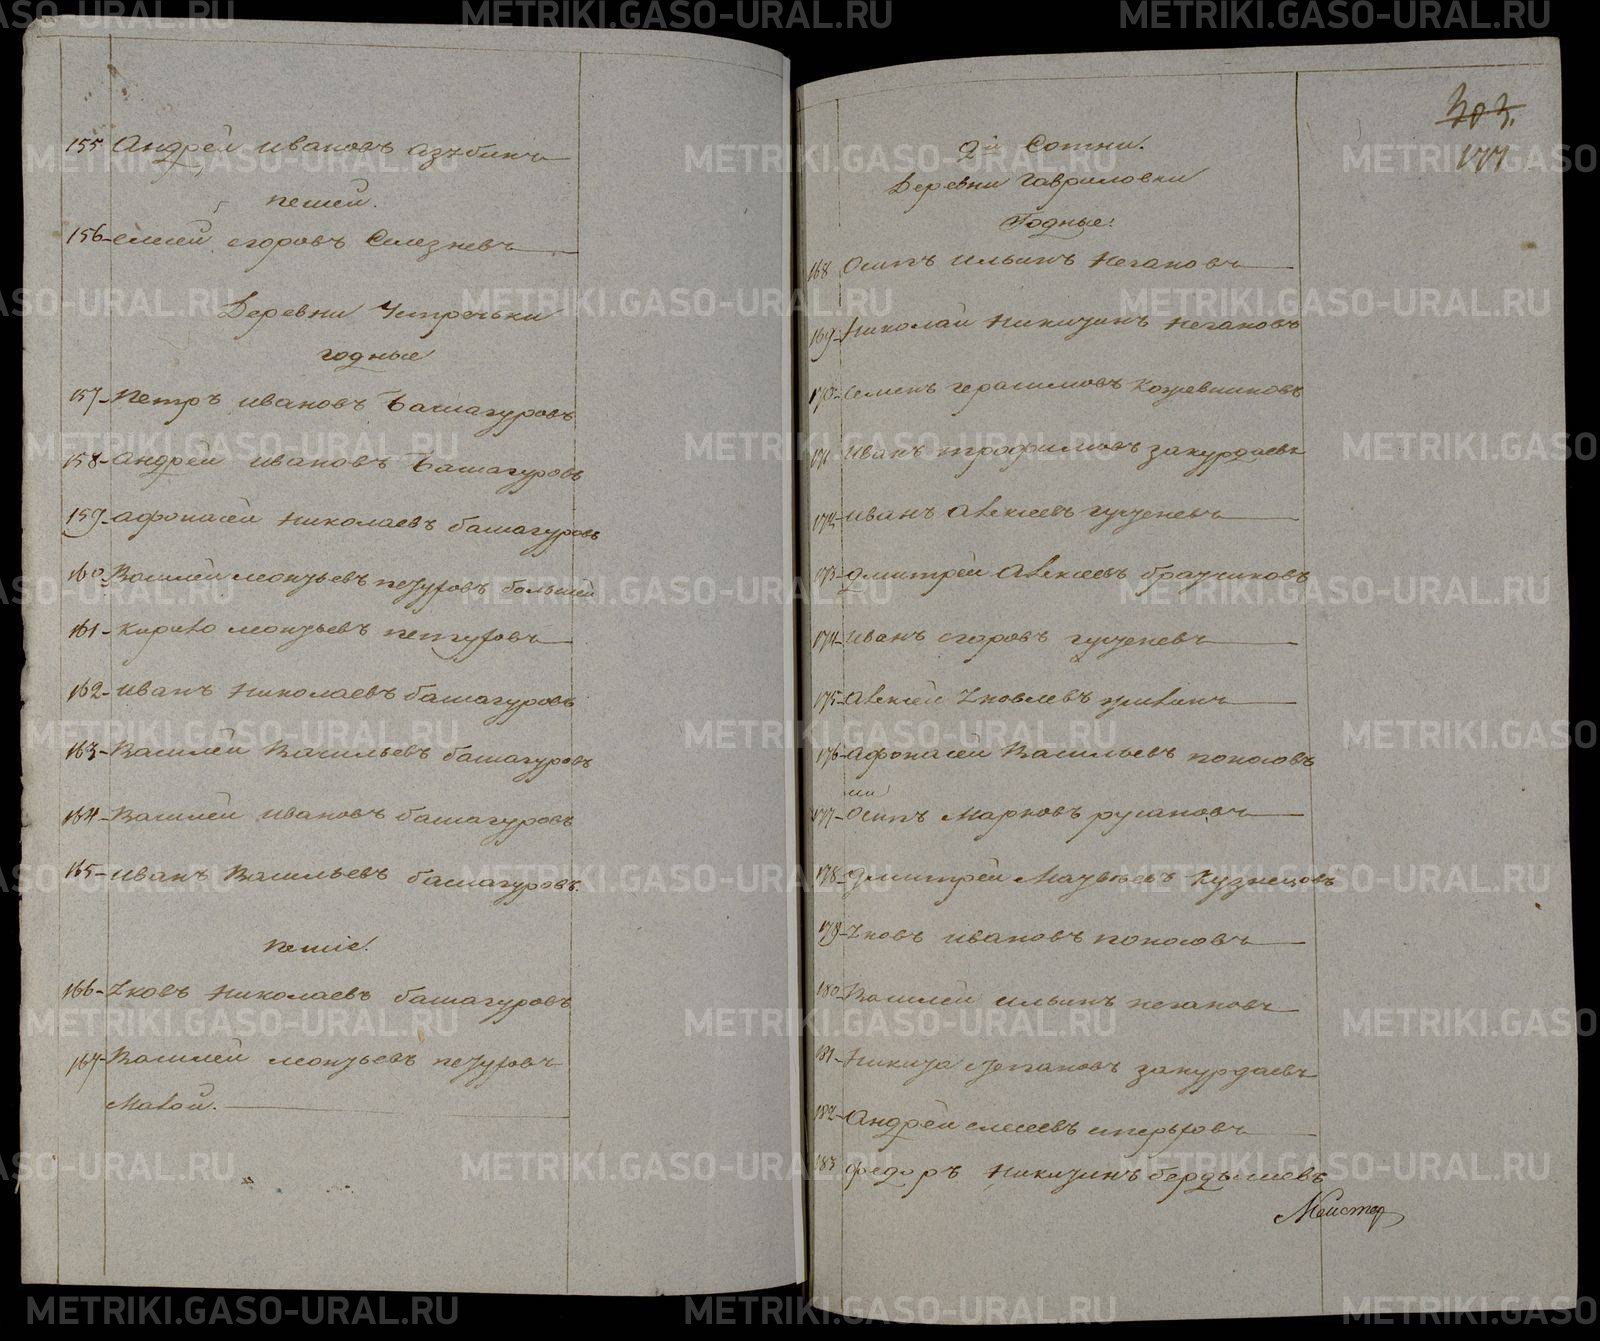 155 Андрей Ивановъ Азѣбинъ
пешей.
156 Елисей Егоровъ Селезневъ
Деревни Устречьки
годные
157 Петръ Ивановъ Башагуровъ
158 Андрей Ивановъ Башагуровъ
159 Афонасей Николаевъ башагуровъ
160 Василей Леонтьевъ петуховъ большей
161 Кирило Леонтьевъ петуховъ
162 Иванъ Николаевъ башагуровъ
163 Василей Васильевъ башагуровъ
164 Василей Ивановъ башагуровъ
165 Иванъ Васильевъ башагуровъ.
пешіе.
166 Яковъ Николаевъ башагуровъ
167 Василей Леонтьевъ петуховъ
Малой.
303.
177
2й Сотни.
Деревни Гавриловки
Годные:
168 Осипъ Ильинъ Негановъ
169 Николай Никитинъ Негановъ
170 Семенъ Герасимовъ Кожевниковъ
171 Иванъ трофимовъ закурдаевъ
172 Иванъ Алексеевъ
173 Дмитрей Алексеевъ братчиковъ
174 Иванъ Егоровъ
175 Алексей Яковлевъ
176 Афонасей Васильевъ поносовъ
177 Осипъ Марковъ русановъ
178 Дмитрей Матвеевъ Кузнецовъ
179 Яковъ Ивановъ поносовъ
180 Василей Ильинъ негановъ
181 Никита Степановъ закурдаевъ
182 Андрей Елисеевъ
183 Федоръ Никитинъ бердышевъ
Мейстер
METRIKI.GASO-URAL.RU